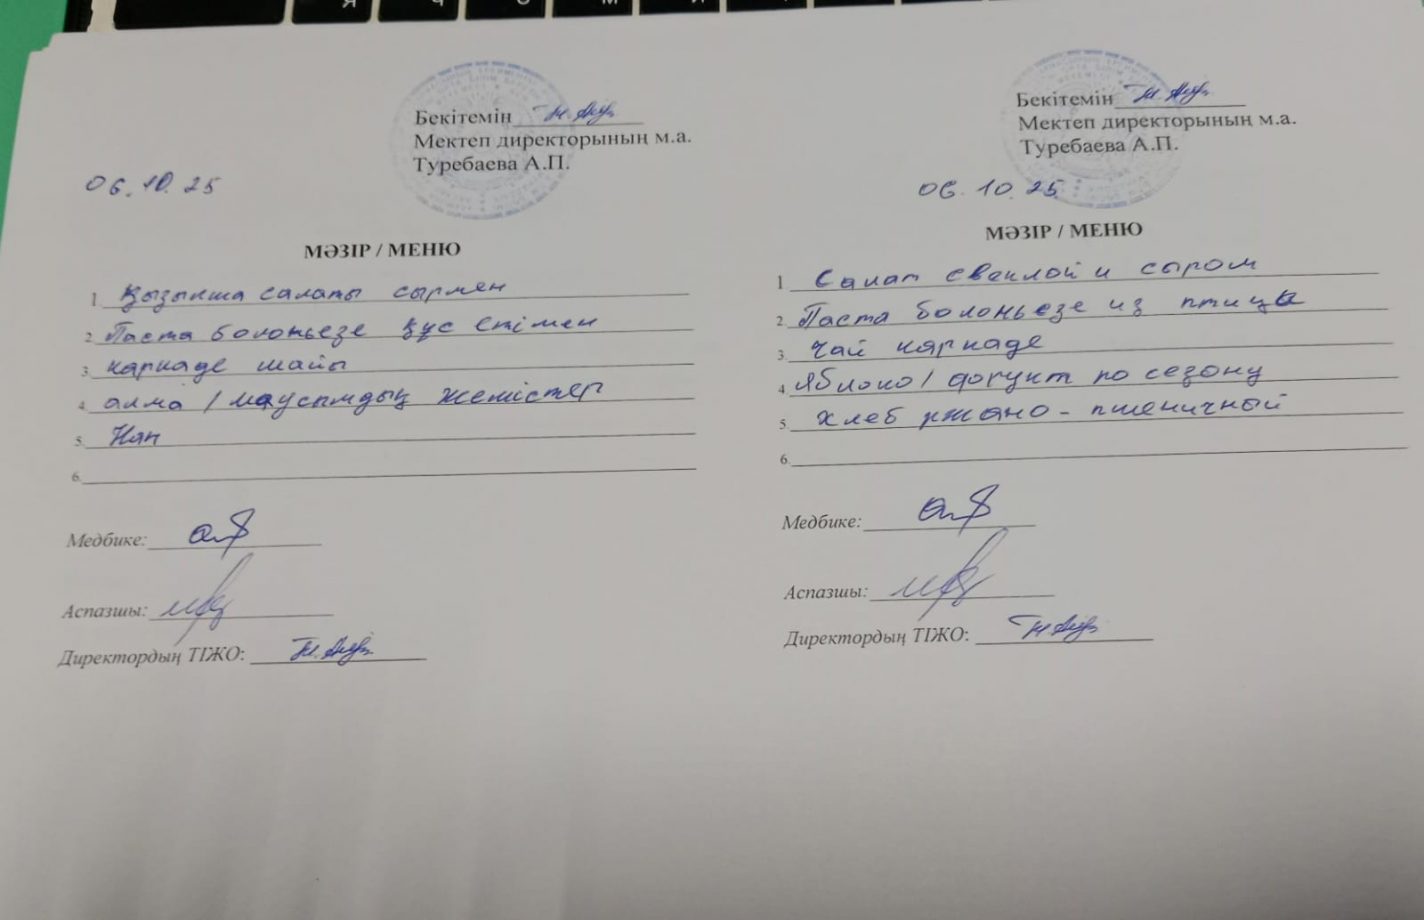 Бекітемін
Мектеп директорының м.а.
Туребаева А.П.
06.10.25
МӘЗІР / МЕНЮ
1. Қызылша салаты сырмен
2. Паста болоньезе құс етімен
3. каркаде шайы
4. алма / маусымдық жемістер
5. Нан
6.
Медбике:
Аспазшы:
Директордың ТІЖО:
Бекітемін
Мектеп директорының м.а.
Туребаева А.П.
06.10.25
МӘЗІР / МЕНЮ
1. Салат свеклой и сыром
2. Паста болоньезе из птицы
3. Чай каркаде
4. Яблоко / фрукт по сезону
5. Хлеб ржано-пшеничный
6.
Медбике:
Аспазшы:
Директордың ТІЖО: